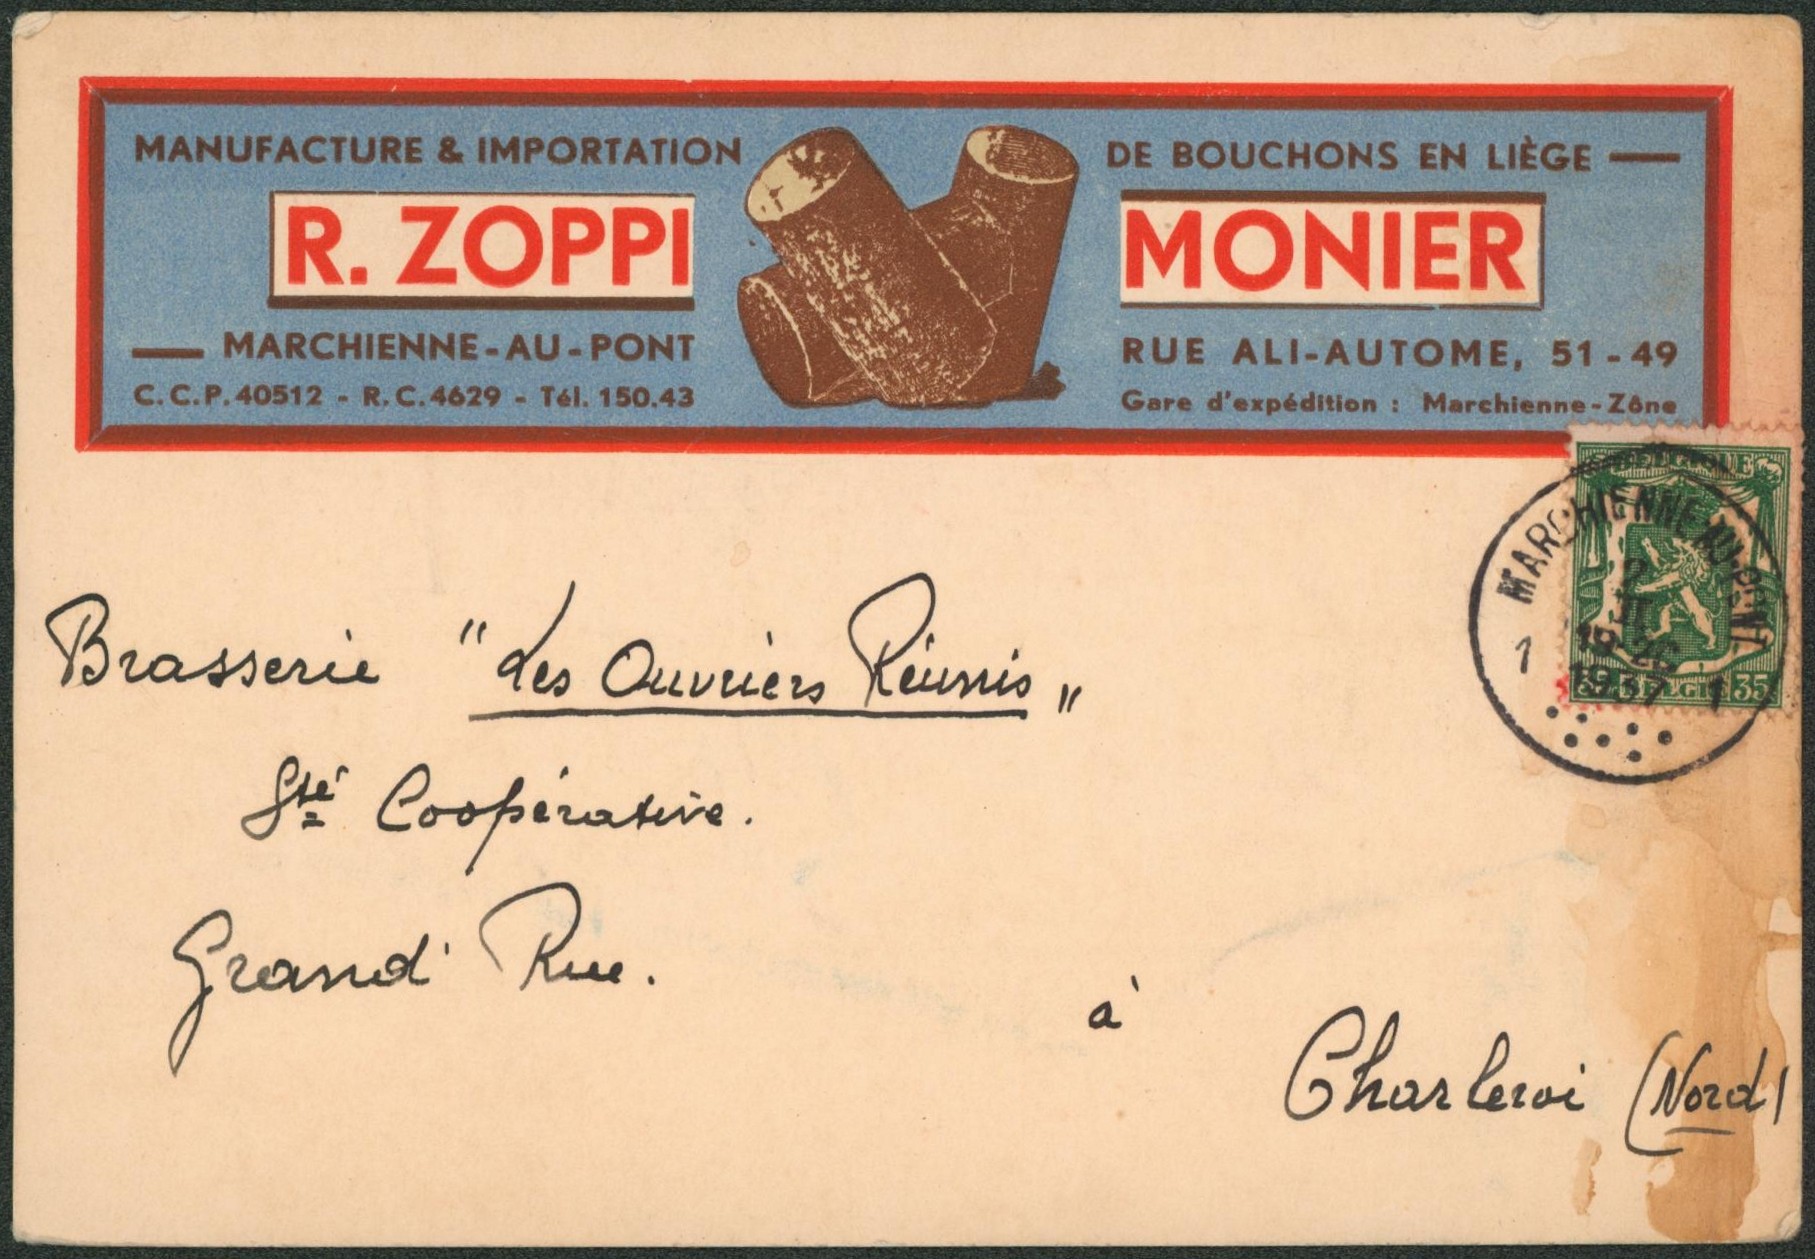 MANUFACTURE & IMPORTATION DE BOUCHONS EN LIÈGE
R. ZOPPI MONIER
MARCHIENNE-AU-PONT
C.C.P. 40512 - R.C. 4629 - Tél. 150.43
RUE ALI-AUTOME, 51-49
Gare d'expédition : Marchienne-Zône
MARCHIENNE-AU-PONT
1937
1 1
35
Brasserie "Les Ouvriers Réunis"
Sté Coopérative.
Grand' Rue.
à
Charleroi (Nord)